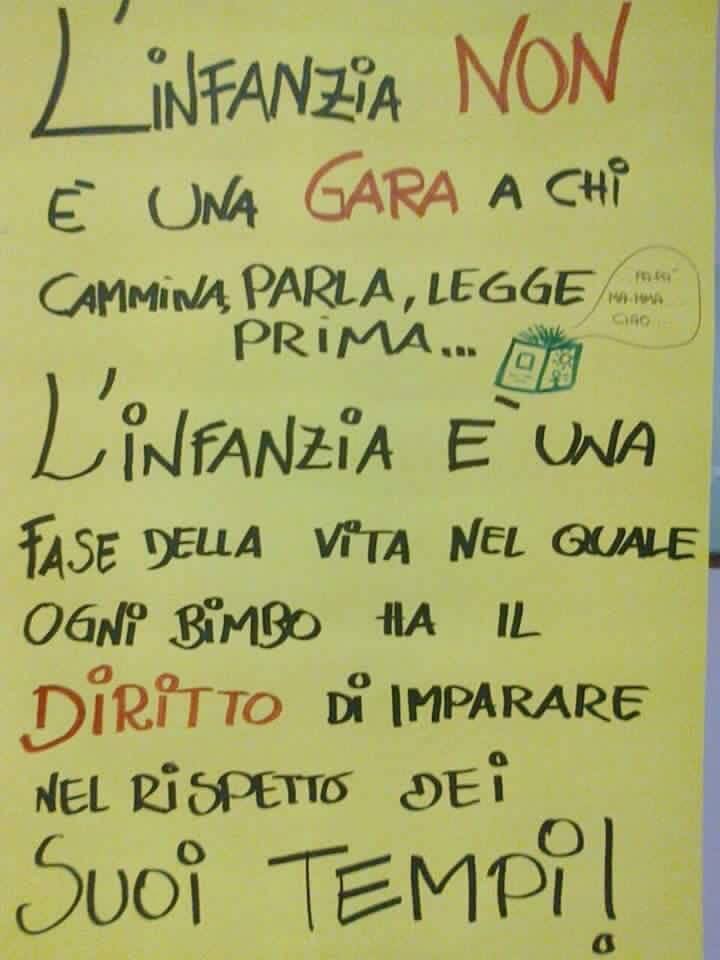 L'INFANZIA NON
E' UNA GARA A CHI
CAMMINA, PARLA, LEGGE
PRIMA...
PA-PA'
MA-MMA
CIAO...
L'INFANZIA E' UNA
FASE DELLA VITA NEL QUALE
OGNI BIMBO HA IL
DIRITTO DI IMPARARE
NEL RISPETTO DEI
SUOI TEMPI!